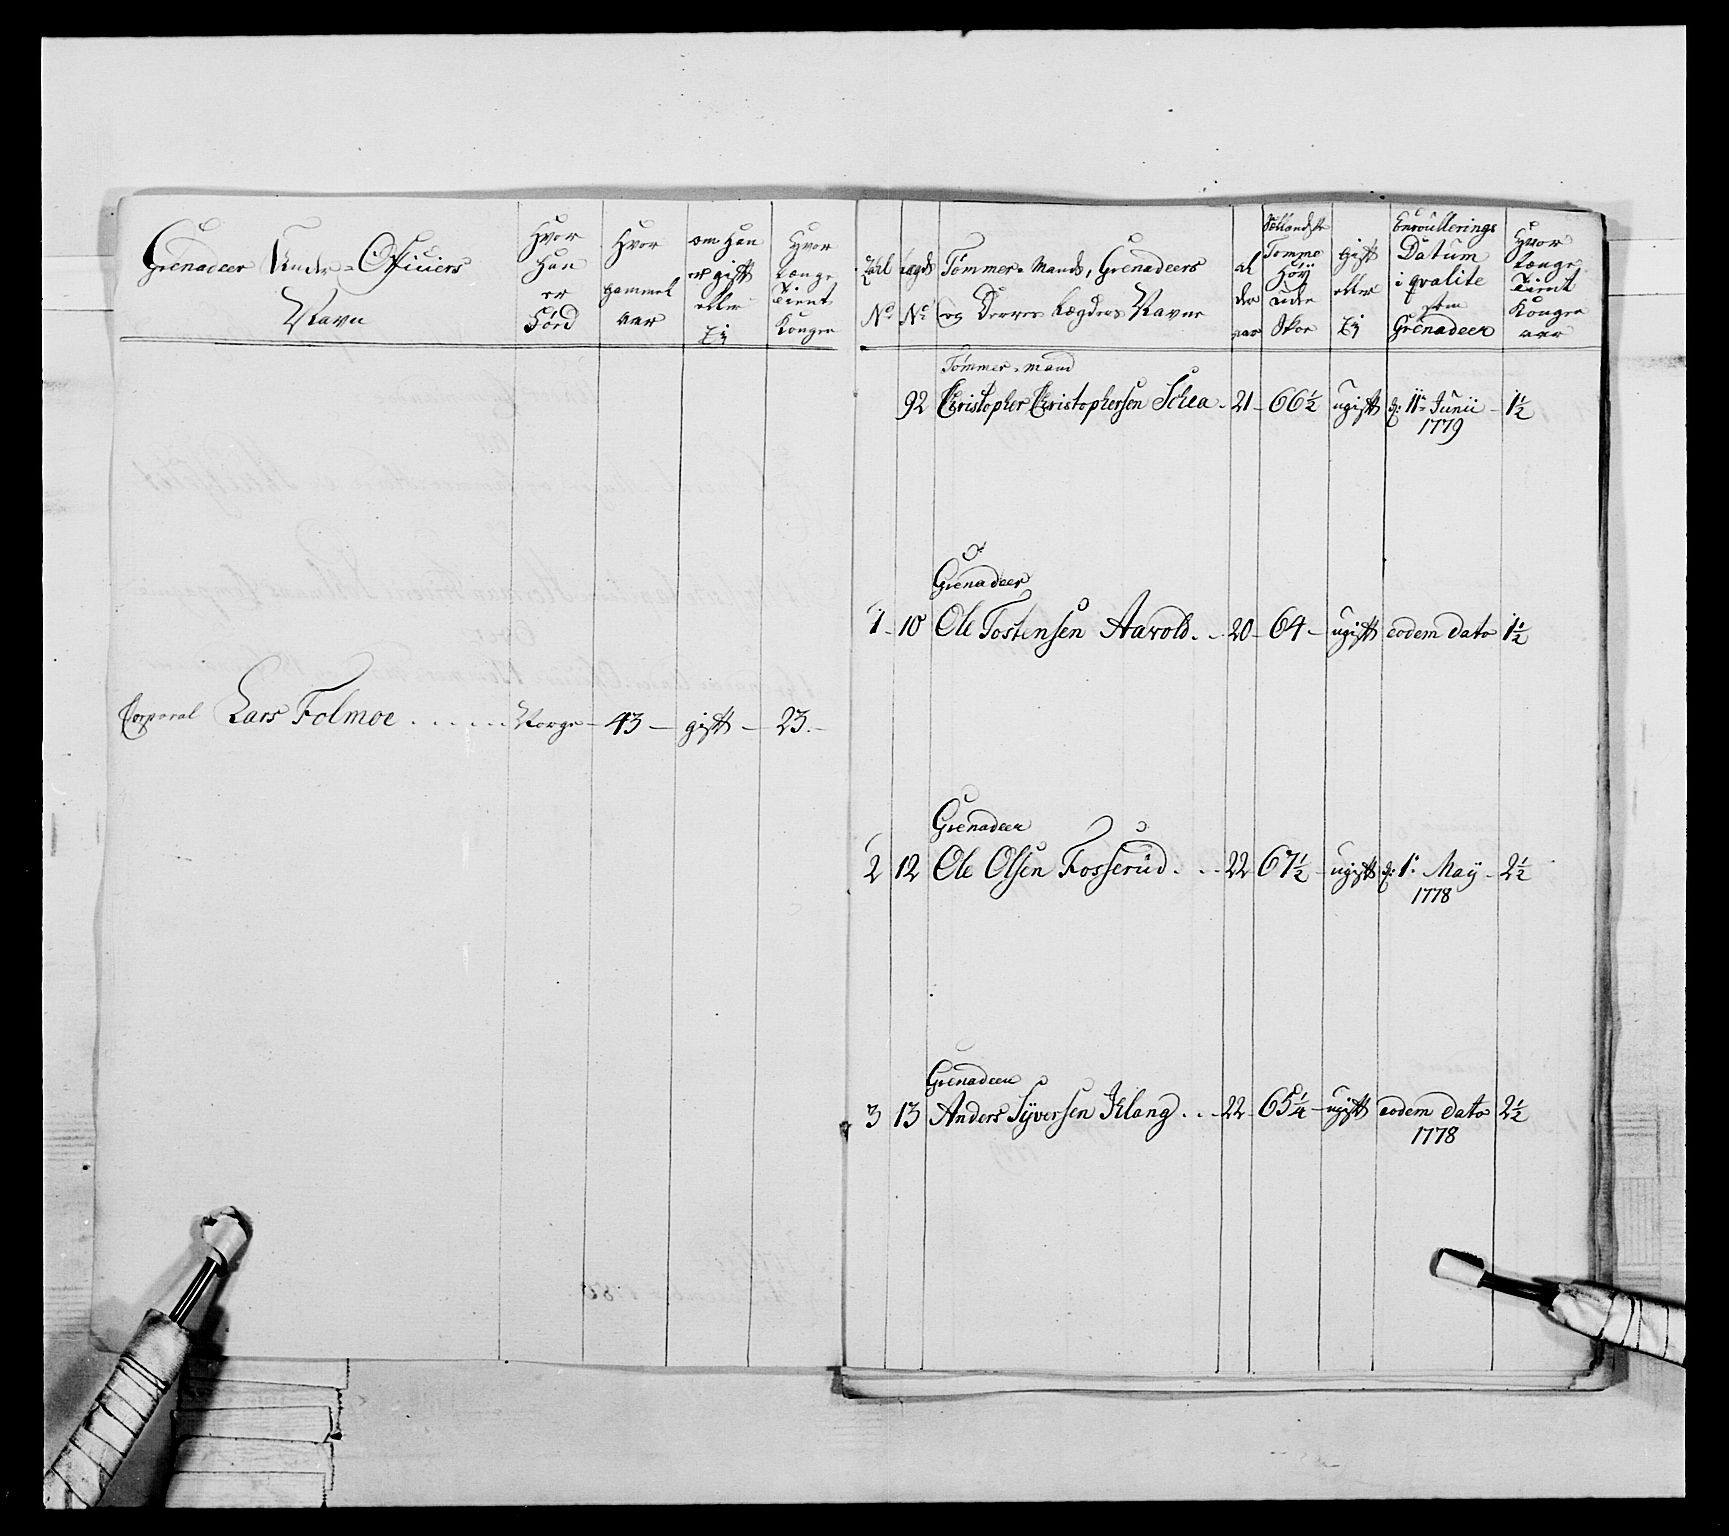 Grenadeer Under-Officiers
Navn
Hvor
Han
er
Førd
Hvor
gammel
aar
om Han
er gift
eller
Ej
Hvor
længe
Tient
Kongen
Corporal Lars Folmoe . . . . . . Norge - 43 - gift - 23. -
Tall
No.
Lægds
No.
Tømmer-Mands, Grenadeers
og Deres Lægders Navne
al
der
aar
Sællandske
Tomme
Høÿ
uden
Skoe
Gift
eller
Ej
Enroullerings
Datum
i qvalite
som
Grenadeer
Hvor
længe
Tient
Kongen
aar
Tømmer-mand
92 Christopher Christophersen Schea - 21 - 66½ ugift d: 11te Junii - 1½
1779
Grenadeer
1 - 10 Ole Tostensen Aavold . - 20 - 64 - ugift eodem dato 1½
Grenadeer
2 12 Ole Olsen Fosserud . . - 22 67½ - ugift d: 1: Maÿ - 2½
1778
Grenadeer
3 13 Anders Sÿversen Klang . . - 22 - 65¼ - ugift eodem dato 2½
1778